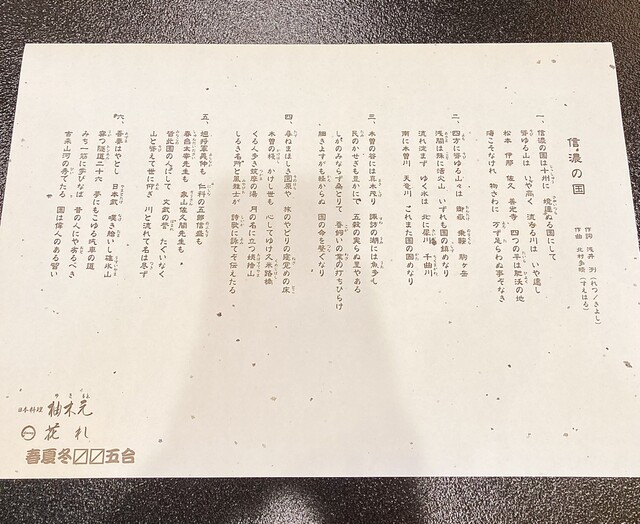 信濃の国
作詞 浅井 洌(れつ/きよし)
作曲 北村季晴(すえはる)
一、
信濃の国は十州に 境連ぬる国にして
聳ゆる山は いや高く 流るる川は いや遠し
松本 伊那 佐久 善光寺 四つの平は肥沃の地
海こそなけれ 物さわに 万ず足らわぬ事ぞなき
二、
四方に聳ゆる山々は 御嶽 乗鞍 駒ヶ岳
浅間は殊に活火山 いずれも国の鎮めなり
流れ淀まず ゆく水は 北に犀川 千曲川
南に木曽川 天竜川 これまた国の固めなり
三、
木曽の谷には真木茂り 諏訪の湖には魚多し
民のかせぎも豊かにて 五穀の実らぬ里やある
しかのみならず桑とりて 蚕飼いの業の打ちひらけ
細きよすがも軽からぬ 国の命を繋ぐなり
四、
尋ねまほしき園原や 旅のやどりの寝覚めの床
木曽の桟 かけし世も 心してゆけ久米路橋
くる人多き筑摩の湯 月の名に立つ姨捨山
しるき名所と風雅士が 詩歌に詠てぞ伝えたる
五、
旭将軍義仲も 仁科の五郎信盛も
春台太宰先生も 象山佐久間先生も
皆此国の人にして 文武の誉 たぐいなく
山と聳えて世に仰ぎ 川と流れて名は尽ず
六、
吾妻はやとし 日本武 嘆き給いし碓氷山
穿つ隧道二十六 夢にもこゆる汽車の道
みち一筋に学びなば 昔の人にや劣るべき
古来山河の秀でたる 国は偉人のある習い
日本料理 柚木元
花札
春夏冬〼〼五合